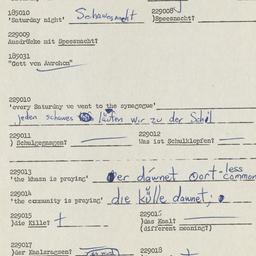 185010 229008
'Saturday night' Schawesnacht )Spessnacht?
229009
Ausdrücke mit Spessnacht?
189031
"Gott von Awrohom"
229010
'every Saturday we went to the synagogue'
jeden schawes läuten wir zu der Schil
229011 229012
) Schulgesangen? Was ist Schulklopfen?
229013
'the khazn is praying' Der dawnet dort - less common
229014
'the community is praying' die külle dawnet;
229015 229016
)die Kille? )das Knal?
(different meaning?)
229017 229018